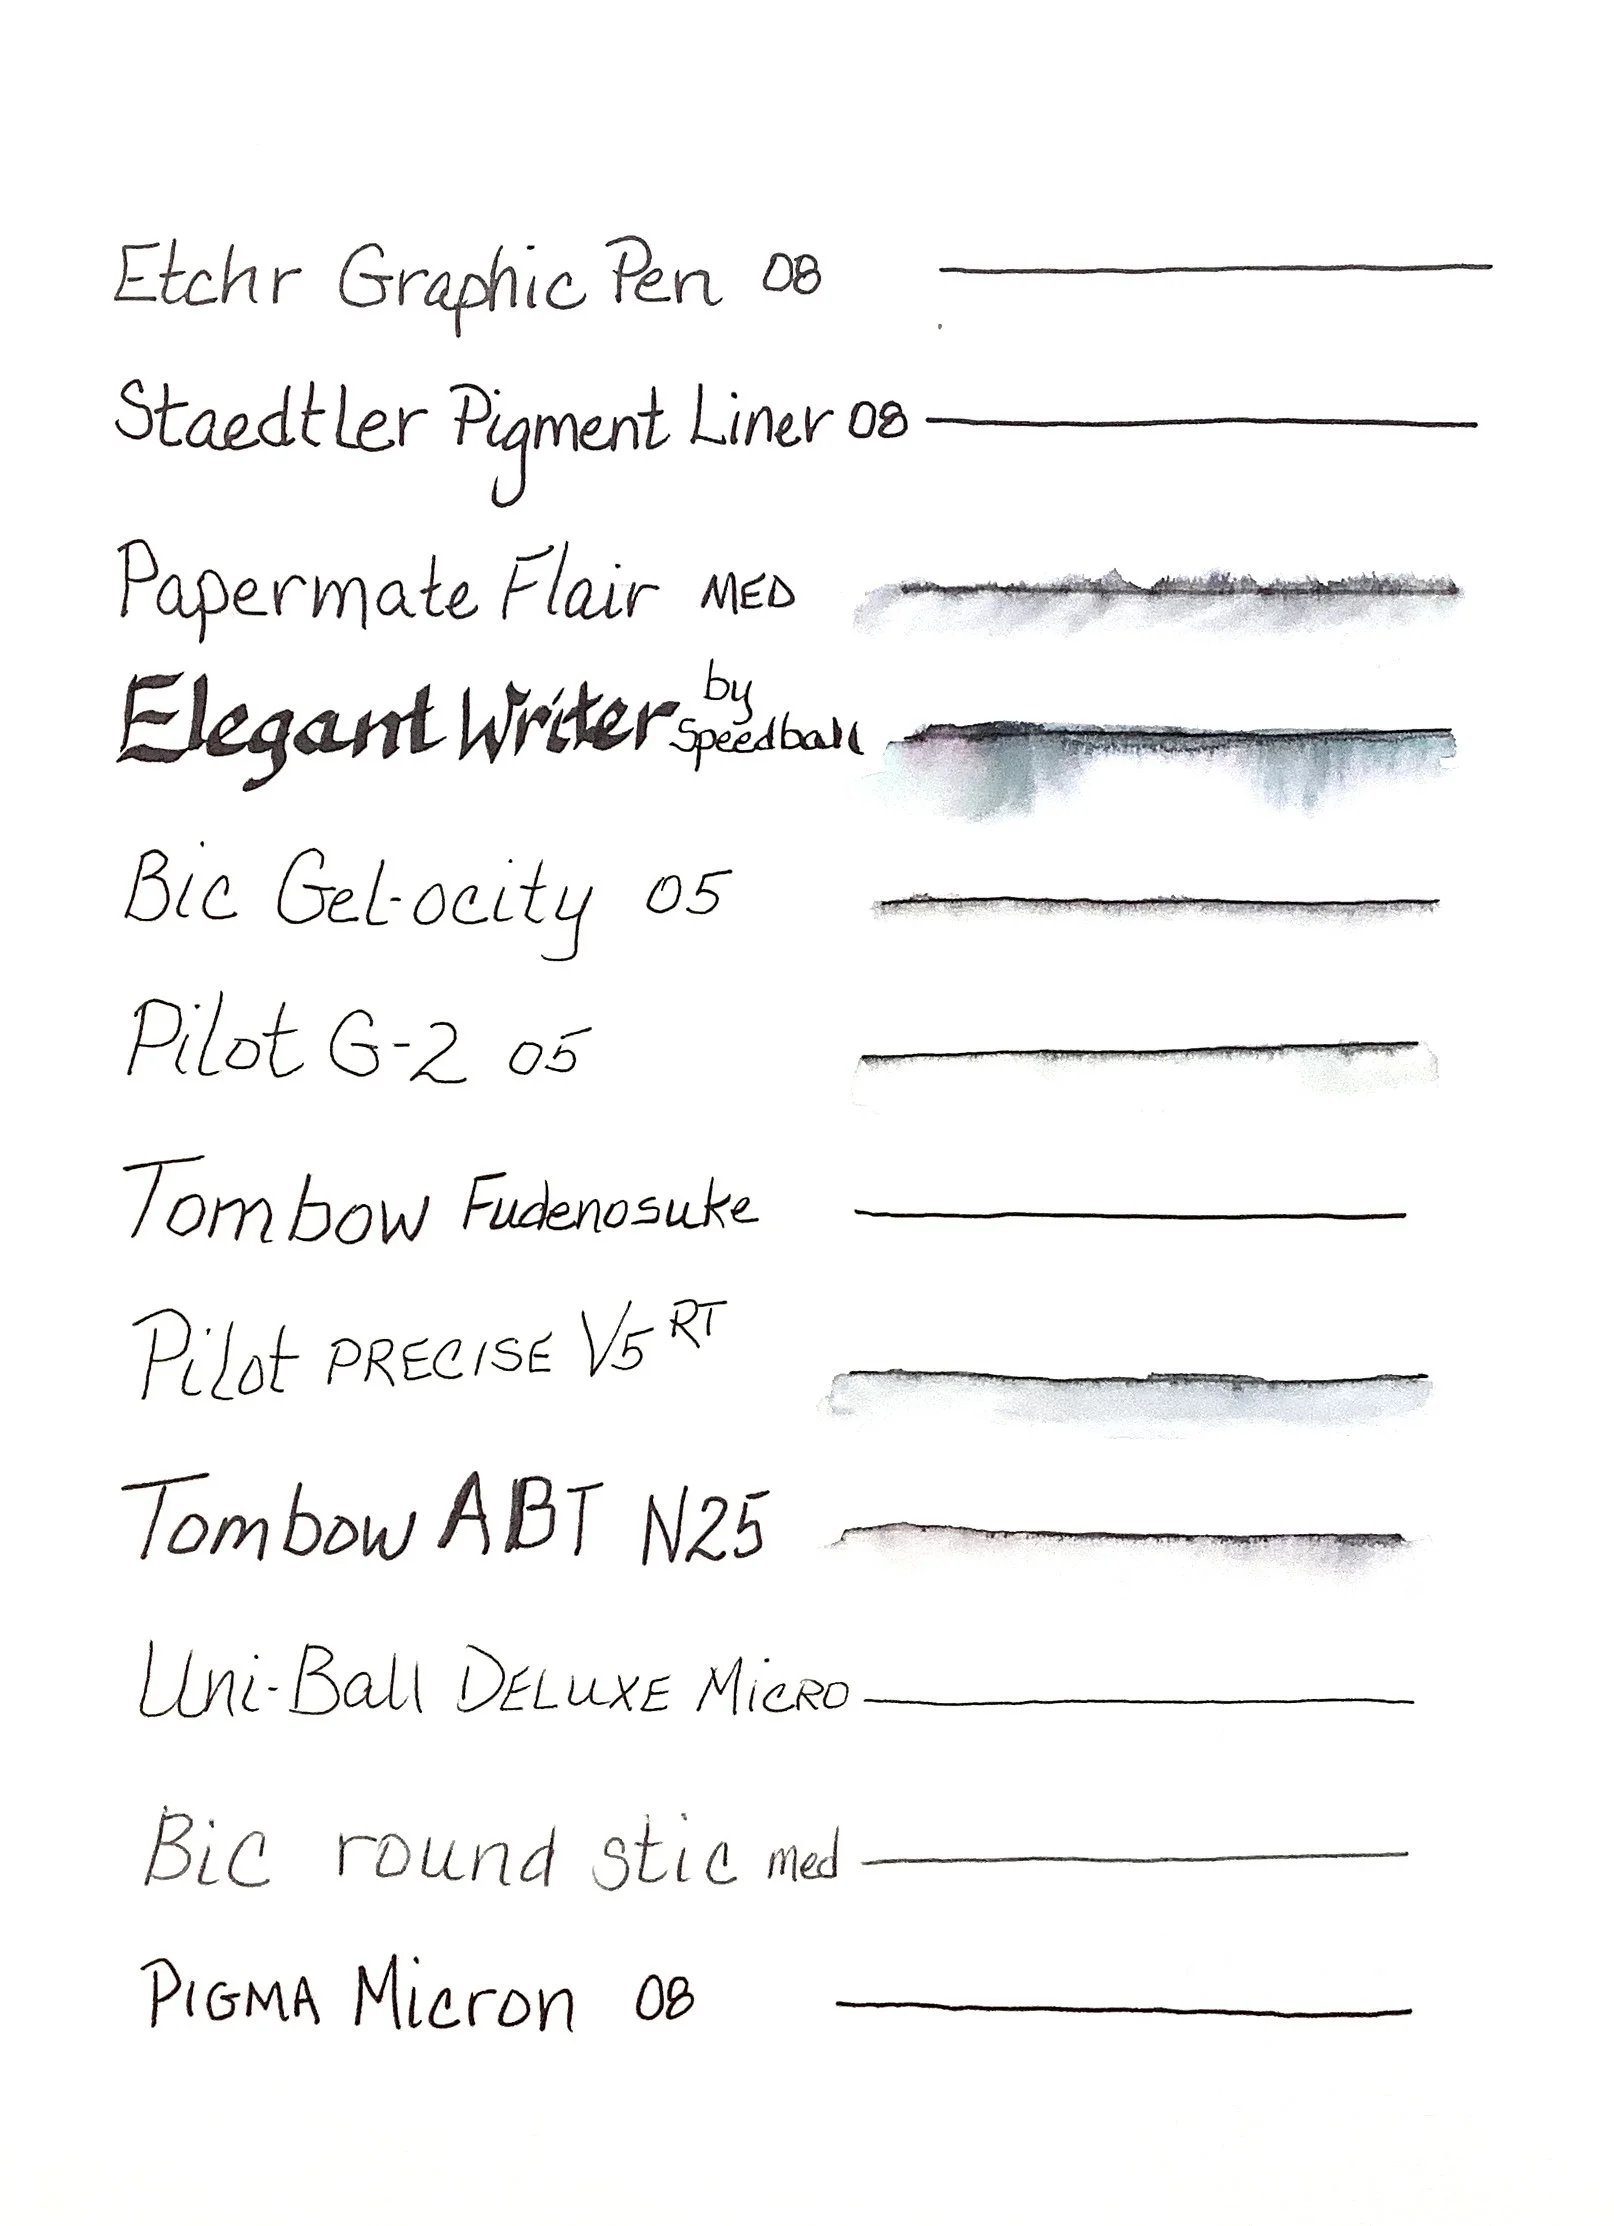 Etchr Graphic Pen 08
Staedtler Pigment Liner 08
Papermate Flair MED
Elegant Writer by Speedball
Bic Gel-ocity 05
Pilot G-2 05
Tombow Fudenosuke
Pilot PRECISE V5 RT
Tombow ABT N25
Uni-Ball DELUXE MICRO
Bic round stic med
PIGMA Micron 08